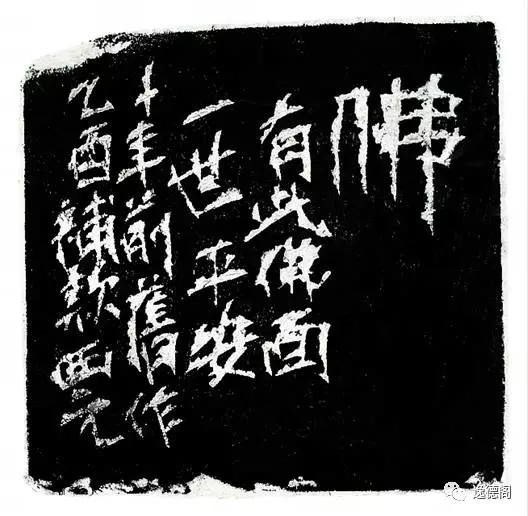 佛
有此佛面
一世平安
十年前舊作
乙酉補款
逸德阁